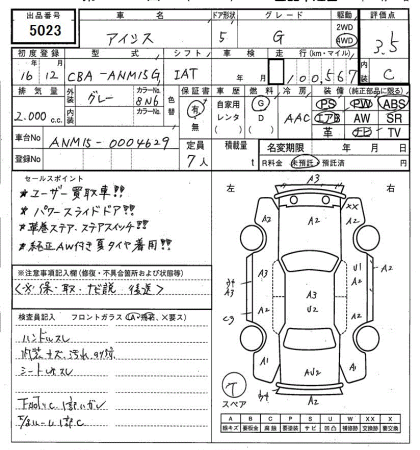 出品番号 車名 ドア形状 グレード 駆動 評価点
5023 アイシス 5 G 2WD 4WD 3.5
初度登録 型式 シフト 車検 走行(km・マイル) 内装
16年 12月 CBA-ANM15G IAT 年 月 100,567 C
排気量 外装 カラーNo. 色替 保証書 車歴 燃料 冷房 装備(純正部品に限る)
2.000 c.c. グレー 8N6 有 自家用 G AAC PS PW ABS
内装 カラーNo. 無 レンタ D エアB AW SR
革 ナビ TV
車台No ANM15-0004629 定員 積載量 名変期限 年 月 日
登録No 7人 t R料金 未預託 預託済 円
セールスポイント
*ユーザー買取車!!
*パワースライドドア!!
*革巻ステア、ステアスイッチ!!
*純正AW付き夏タイヤ着用!!
※注意事項記入欄(修復・不具合箇所および状態等)
<保・取・ナビ説 後送>
検査員記入 フロントガラス(A=飛石、X要ス)
ハンドルスレ
内装キズ、汚れ
シートスレ
左 右
A3
A2 A2 A2
A3 U1 A2
A3 A3 A2
A3 U2
A2 A2
A1 AU2 A1
A2
スペア
A B C P S U W XX X
線キズ 要板金 腐蝕 要塗装 サビ 凹凸 補修跡 交換跡 要交換